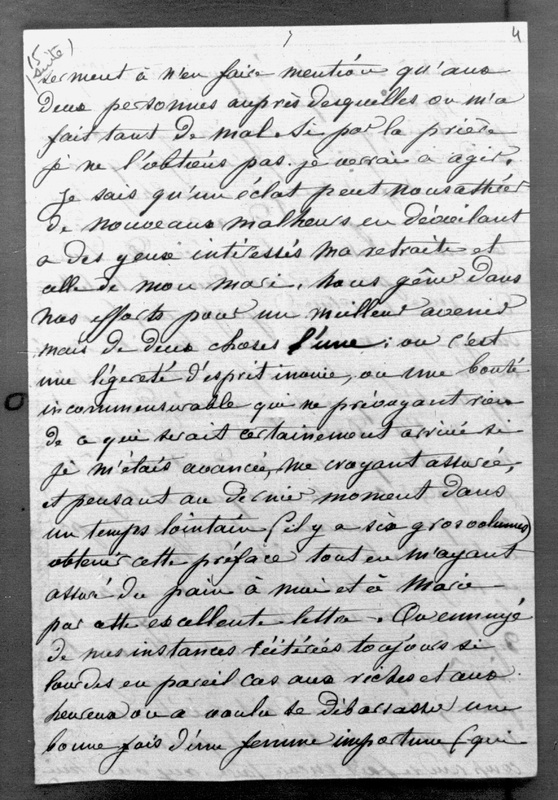 15
(suite)
4
serment à n'en faire mention qu'aux
deux personnes auprès desquelles on m'a
fait tant de mal. Si par la prière
je ne l'obtiens pas je verrai à agir.
Je sais qu'un éclat peut nous attirer
de nouveaux malheurs en dévoilant
a des yeux intéressés ma retraite et
celle de mon mari, nous gêner dans
nos efforts pour un meilleur avenir
mais de deux choses l'une : ou c'est
une légereté d'esprit inouie, ou une bonté
incommensurable qui ne prévoyant rien
de ce qui serait certainement arrivé si
je m'étais avancée, me croyant assurée,
et pensant au dernier moment dans
un temps lointain (il y a six gros volumes)
obtenir cette préface tout en m'ayant
assuré du pain à moi et à Marie
par cette excellente lettre. Ou ennuyé
de mes instances réitérées toujours si
lourdes en pareil cas aux riches et aux
heureux on a voulu se débarrasser une
bonne fois d'une femme importune (qui